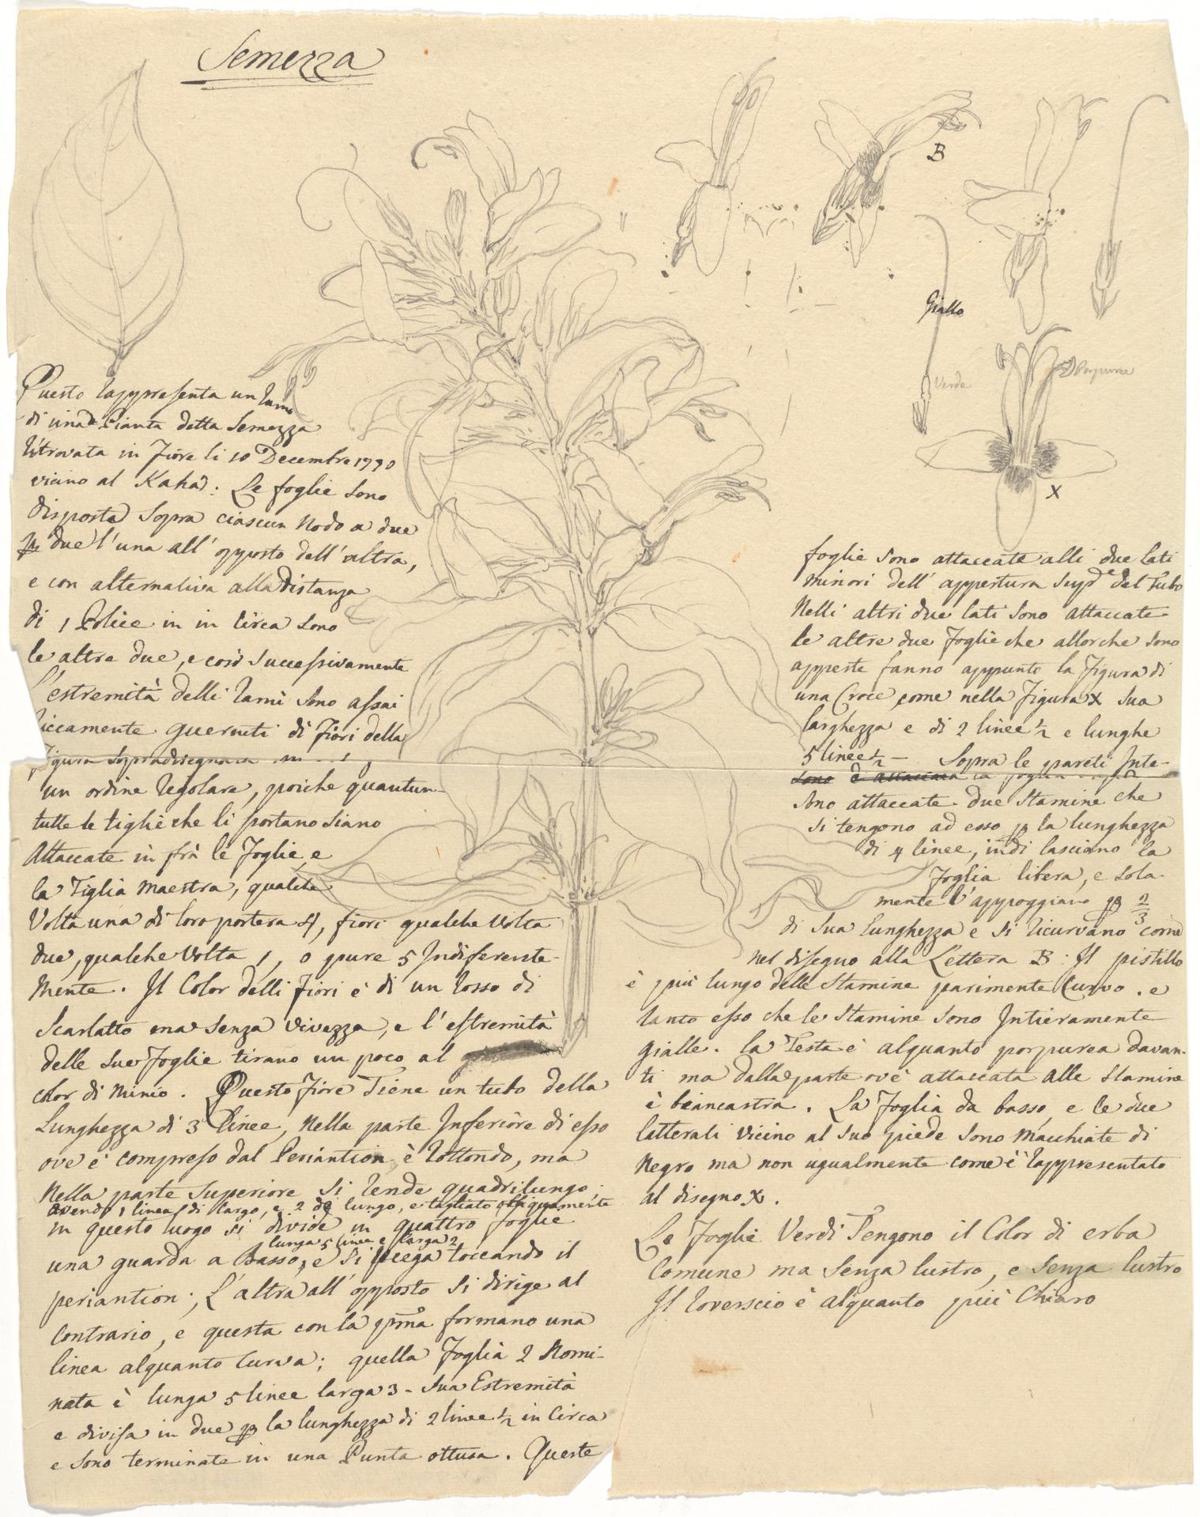 Semezza
Questo rappresenta un ramo
di una Pianta detta Semezza
ritrovata in Fiore li 10 Decembre 1790
vicino al Kaha: Le foglie sono
disposte sopra ciascun Nodo a due
due l'una all' opposto dell' altra,
e con alternativa alla distanza
di 1 Police in in Circa sono
le altre due, e così successivamente
l'estremità delli rami sono assai
riccamente guerniti di Fiori della
Figura Sopradisegnata
un ordine regolare, poiche quantun-
tutte le tiglie che li portano siano
Attaccate in frà le Foglie, e
la Tiglia maestra, qualche
Volta una di loro portera 4, fiori qualche volta
due, qualche volta 1, o pure 5 Indiferente-
mente. Il Color delli fiori è di un rosso di
Scarlatto ma senza vivezza, e l'estremità
delle sue Foglie tirano un poco al
chor di minio. Questo Fiore Tiene un tubo della
Lunghezza di 3 Linee, Nella parte Inferiore di esso
ove è compreso dal Periantion è rottondo, ma
nella parte Superiore si rende quadrilungo
avendo 1 linea di largo, e 2 di lungo, e tagliato obliquamente
in questo luogo si divide in quattro foglie
lunga 5 linee e larga 2
una guarda a Basso, e si piega toccando il
periantion; L'altra all' opposto si dirige al
Contrario, e questa con la prima formano una
linea alquanto Curva; quella Foglia 2 Nomi-
nata è lunga 5 linee larga 3 - sua Estremità
e divisa in due p la lunghezza di 2 linee ½ in Circa
e sono terminate in una Punta ottusa. Queste
B
Giallo
Verde
Porpurina
X
foglie sono attaccate alli due lati
minori dell' appertura Supre del Tubo
Nelli altri due lati sono attaccate
le altre due Foglie che allorche sono
apperte fanno appunto la Figura di
una Croce come nella Figura X sua
larghezza e di 2 linee ½ e lunghe
5 linee ½ — Sopra le pareti Inte-
sono attaccate due Stamine che
si tengono ad esso p la lunghezza
di 4 linee, indi lasciano la
Foglia libera, e sola-
mente l'appoggiano p 2/3
di Sua lunghezza e si ricurvano come
nel disegno alla Lettera B. Il pistillo
è più lungo delle Stamine parimente Curvo. e
tanto esso che le Stamine sono Intieramente
gialle. la Testa è alquanto porpurea davan-
ti ma dalla parte ov'è attaccata alle Stamine
è biancastra. La Foglia da basso, e le due
letterali vicino al suo piede sono macchiate di
Negro ma non ugualmente come è rappresentato
al disegno X.
Le Foglie Verdi Tengono il Color di erba
Comune ma Senza lustro, e senza lustro
Il roverscio è alquanto più Chiaro